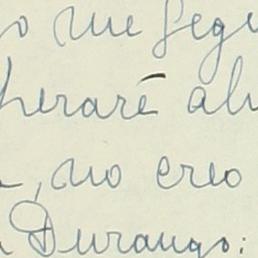 o me segu
peraré ah
, no creo
Durango: